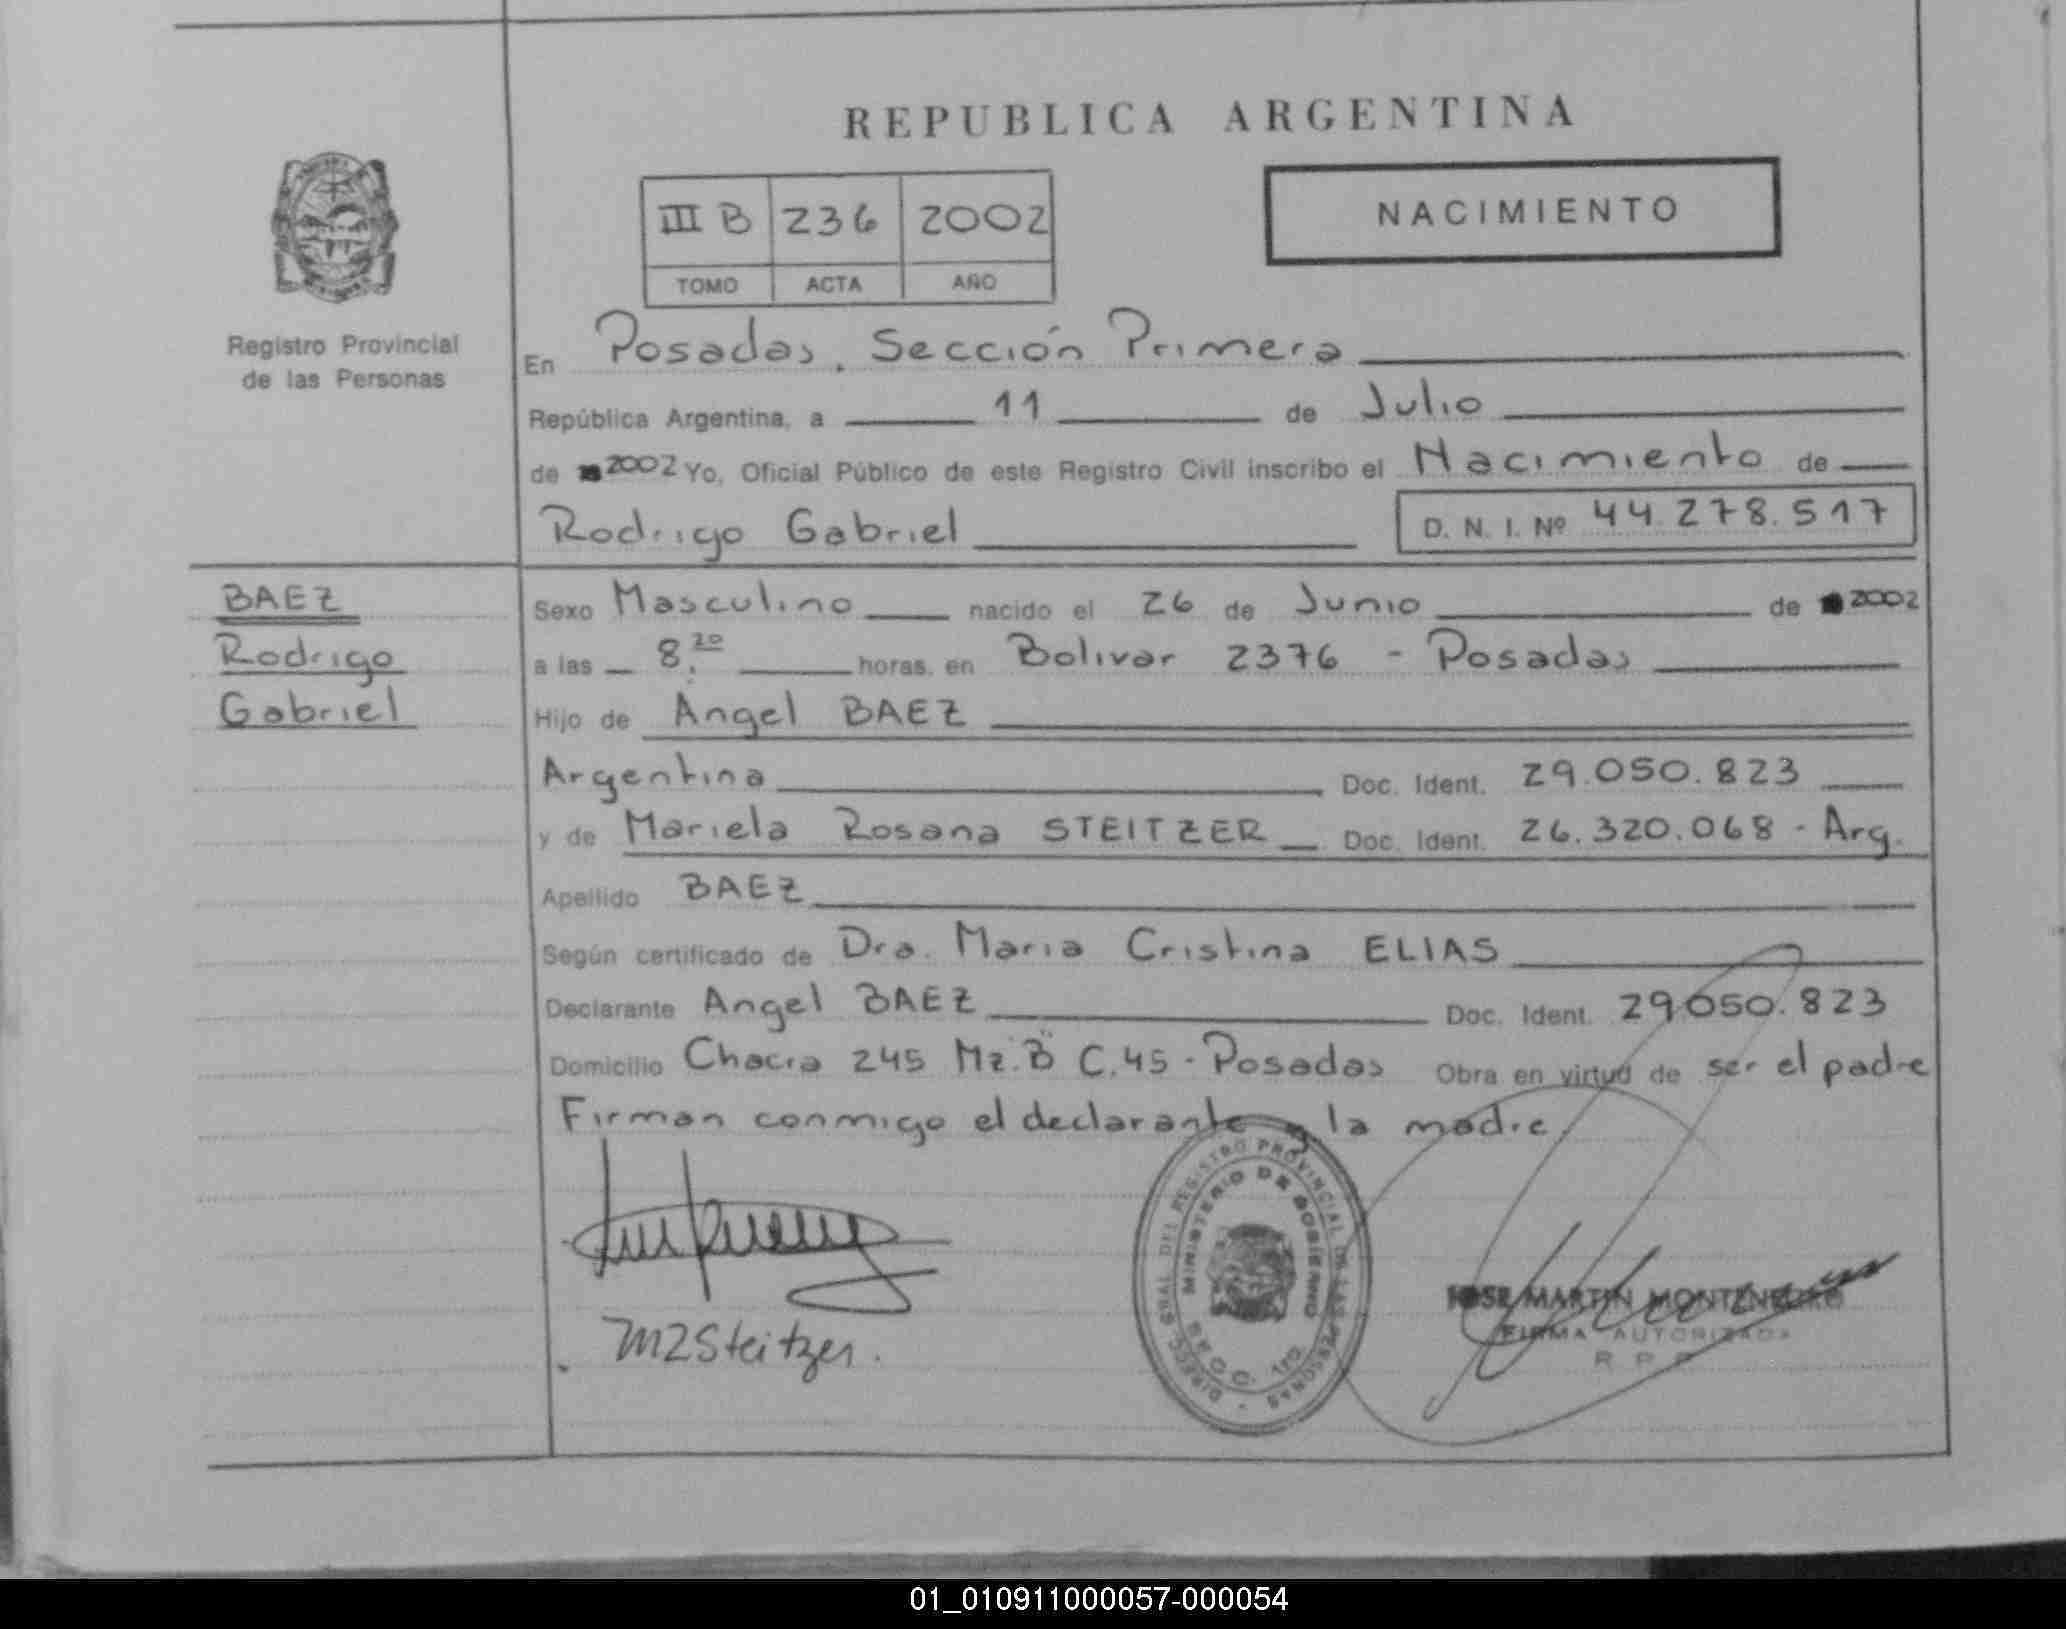 REPUBLICA ARGENTINA
III B 236 2002
TOMO ACTA AÑO
NACIMIENTO
Registro Provincial
de las Personas
En Posadas, Sección Primera
República Argentina, a 11 de Julio
de 2002 Yo, Oficial Público de este Registro Civil inscribo el Nacimiento de
Rodrigo Gabriel D. N. I. Nº 44.278.517
BAEZ
Rodrigo
Gabriel
Sexo Masculino nacido el 26 de Junio de 2002
a las 8.20 horas, en Bolivar 2376 - Posadas
Hijo de Angel BAEZ
Argentina Doc. Ident. 29.050.823
y de Mariela Rosana STEITZER Doc. Ident. 26.320.068 - Arg.
Apellido BAEZ
Según certificado de Dra. Maria Cristina ELIAS
Declarante Angel BAEZ Doc. Ident. 29050.823
Domicilio Chacra 245 Mz."B" C.45 - Posadas Obra en virtud de ser el padre
Firman conmigo el declarante y la madre.
DIRECC. GRAL DEL REGISTRO PROVINCIAL DE LAS PERSONAS
MINISTERIO DE GOBIERNO
SECC. 1ra.
MRSteitzer.
JOSE MARTIN MONTENEGRO
FIRMA AUTORIZADA
R P P
01_010911000057-000054